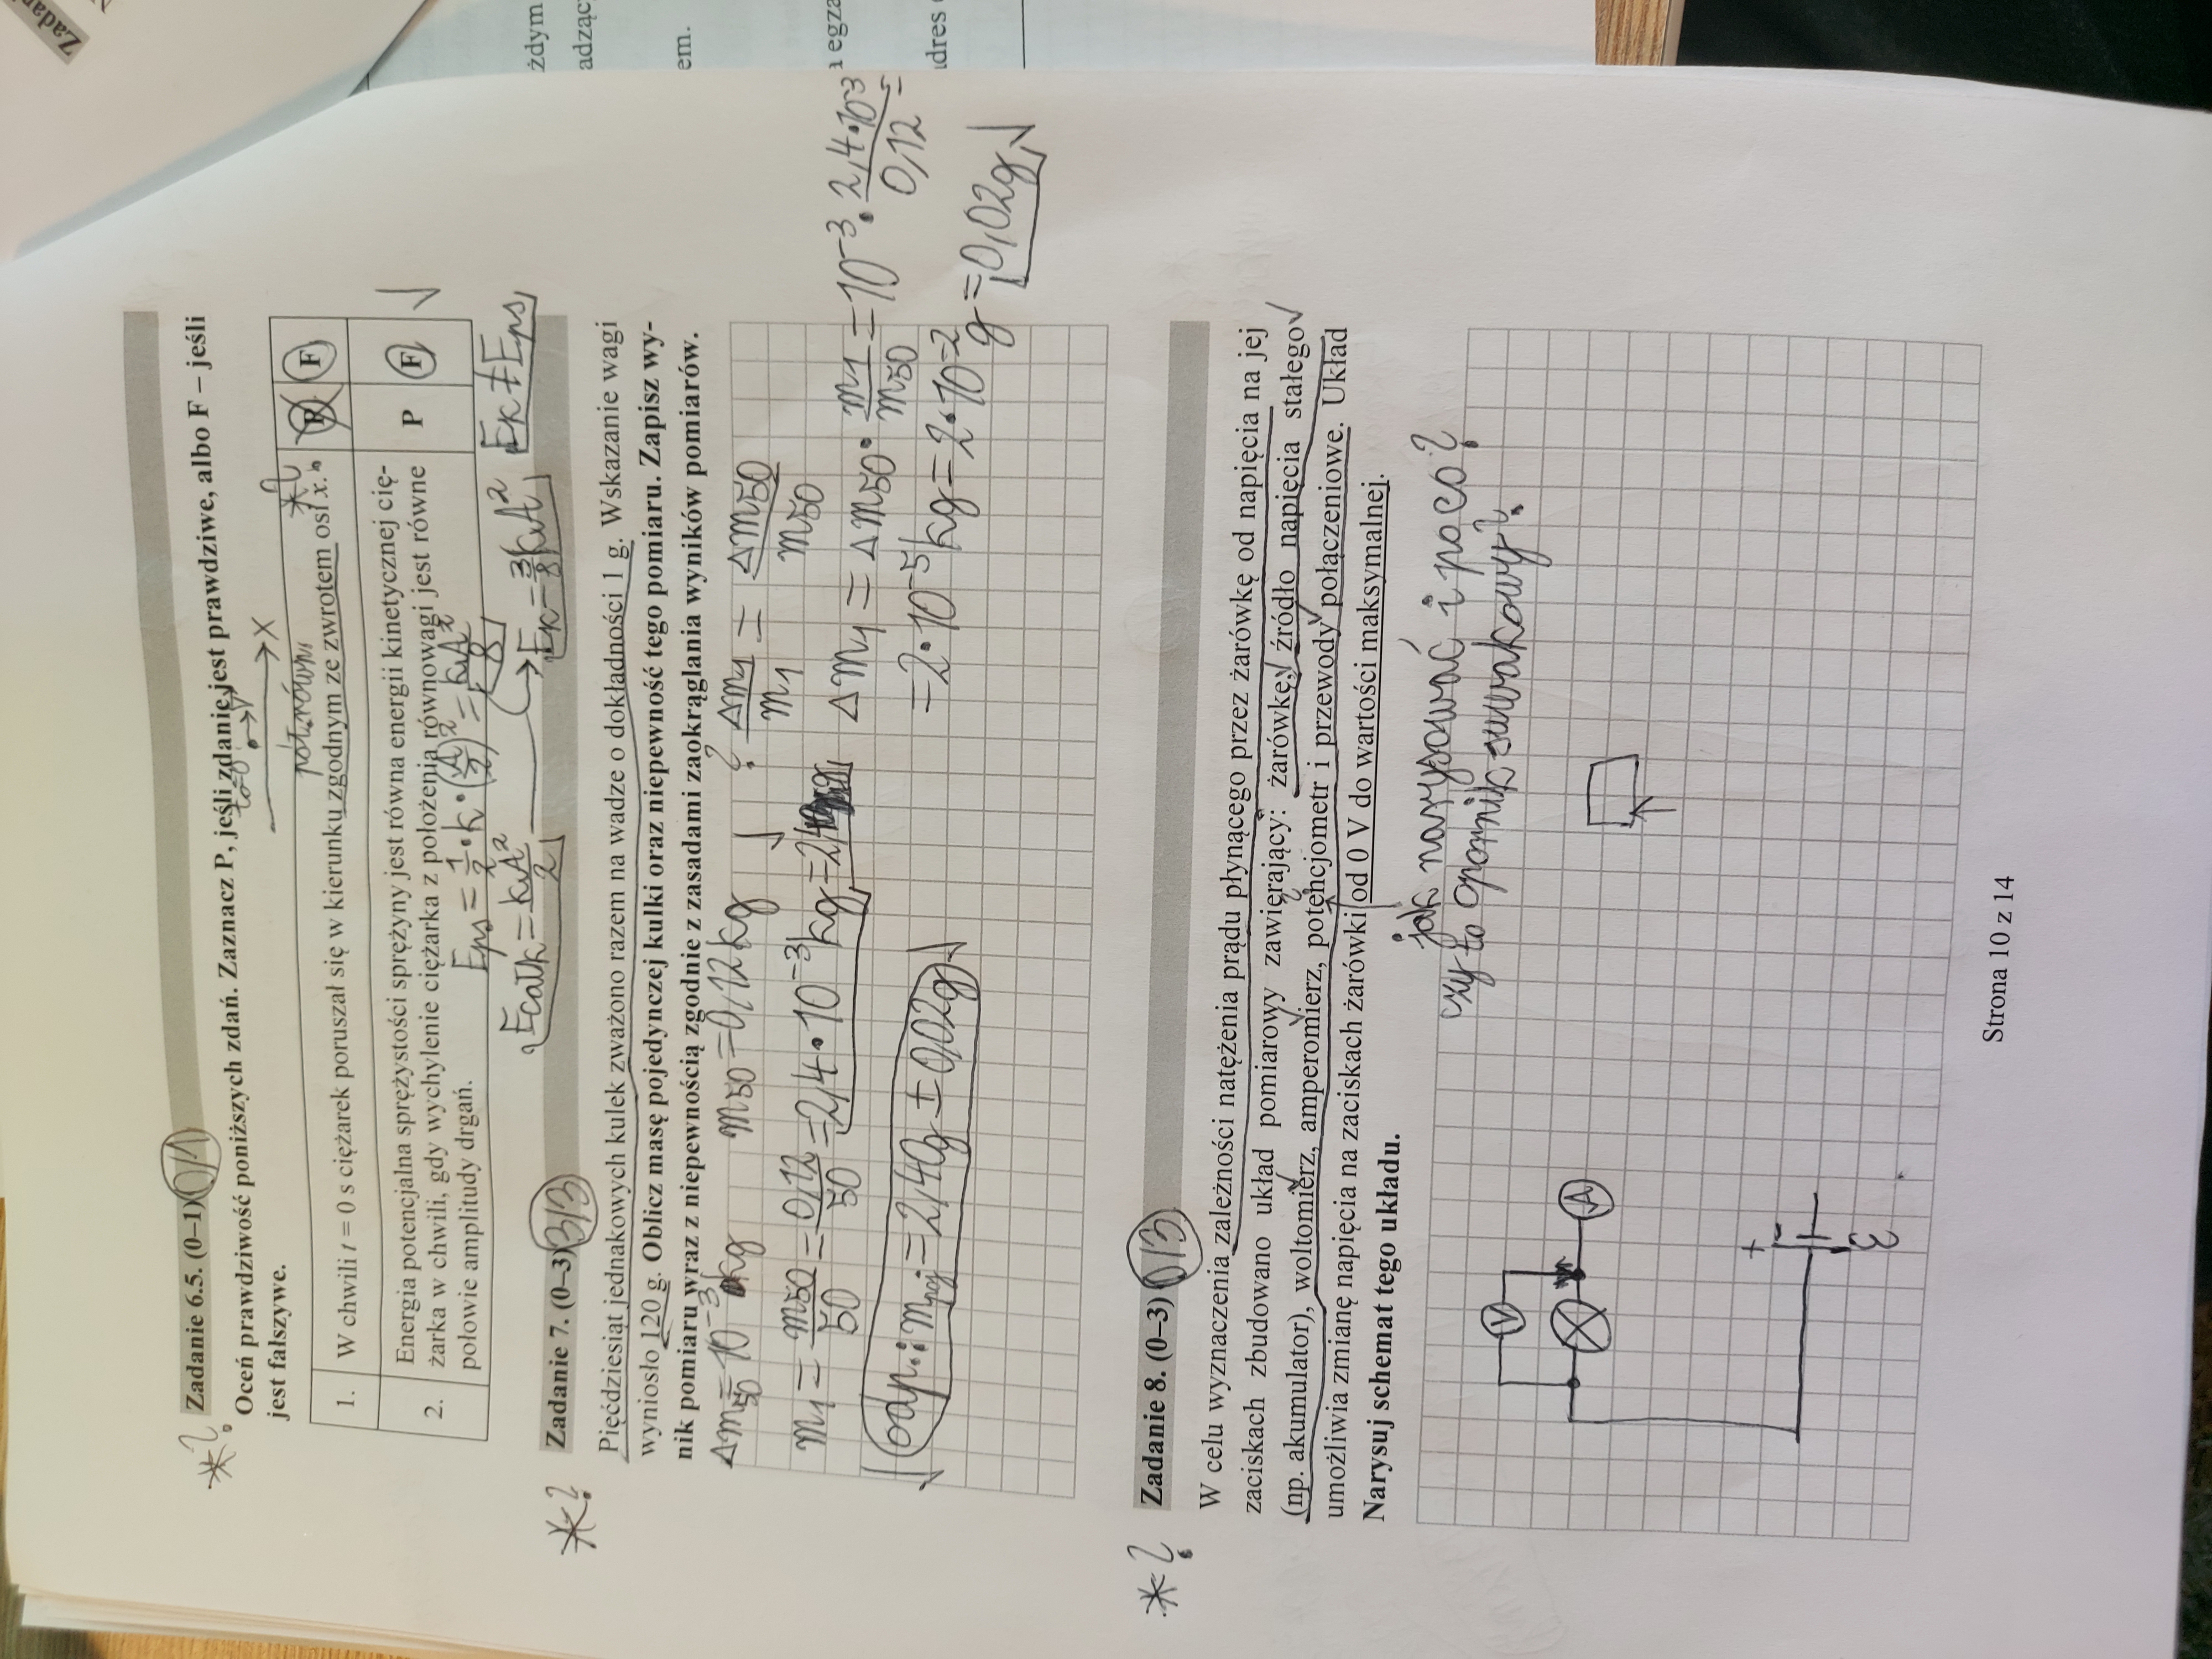 Zadanie 6.5. (0–1) 0/1
Oceń prawdziwość poniższych zdań. Zaznacz P, jeśli zdanie jest prawdziwe, albo F – jeśli
jest fałszywe.
t=0
x
1. W chwili t = 0 s ciężarek poruszał się w kierunku zgodnym ze zwrotem osi x. P F
2. Energia potencjalna sprężystości sprężyny jest równa energii kinetycznej cię-
żarka w chwili, gdy wychylenie ciężarka z położenia równowagi jest równe P F
połowie amplitudy drgań.
Eps = 1/2 · k · (A/2)² = kA²/8
Ecałk = kA²/2 → Ek = 3/8 kA² Ek ≠ Eps
*? Zadanie 7. (0–3) 3/3
Pięćdziesiąt jednakowych kulek zważono razem na wadze o dokładności 1 g. Wskazanie wagi
wyniosło 120 g. Oblicz masę pojedynczej kulki oraz niepewność tego pomiaru. Zapisz wy-
nik pomiaru wraz z niepewnością zgodnie z zasadami zaokrąglania wyników pomiarów.
Δm50 = 10⁻³ kg m50 = 0,12 kg √ ? Δm1/m1 = Δm50/m50
m1 = m50/50 = 0,12/50 = 2,4 · 10⁻³ kg = 2,4 g
Δm1 = Δm50 · m1/m50 = 10⁻³ · 2,4·10⁻³/0,12 =
= 2 · 10⁻⁵ kg = 2 · 10⁻² g = 0,02g √
odp.: mpoj = 2,40g ± 0,02g
*? Zadanie 8. (0–3) 0/3
W celu wyznaczenia zależności natężenia prądu płynącego przez żarówkę od napięcia na jej
zaciskach zbudowano układ pomiarowy zawierający: żarówkę, źródło napięcia stałego
(np. akumulator), woltomierz, amperomierz, potencjometr i przewody połączeniowe. Układ
umożliwia zmianę napięcia na zaciskach żarówki od 0 V do wartości maksymalnej.
Narysuj schemat tego układu.
jak narysować i po co?
czy to opornik suwakowy?
V
A
+ -
ε
Strona 10 z 14
żdym
adzący
em.
a egza
adres
Zadan